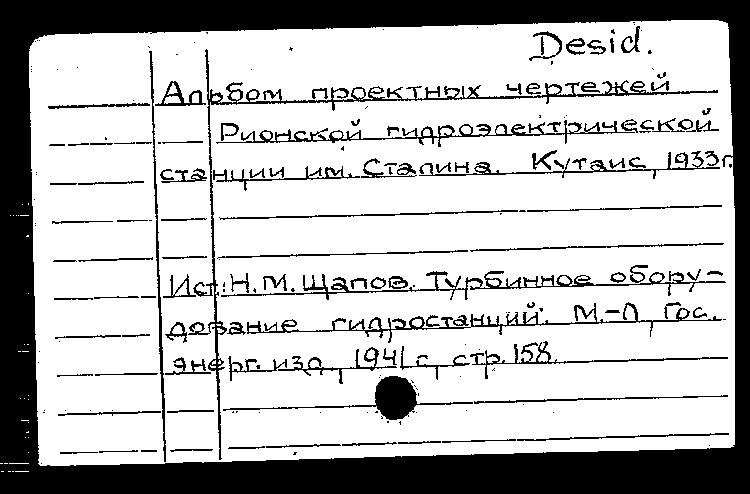 Desid.
Альбом проектных чертежей
Рионской гидроэлектрической
станции им. Сталина. Кутаис, 1933г.
Ист.: Н.М. Щапов. Турбинное обору-
дование гидростанций. М.-Л, Гос.
энерг. изд, 1941 г, стр. 158.